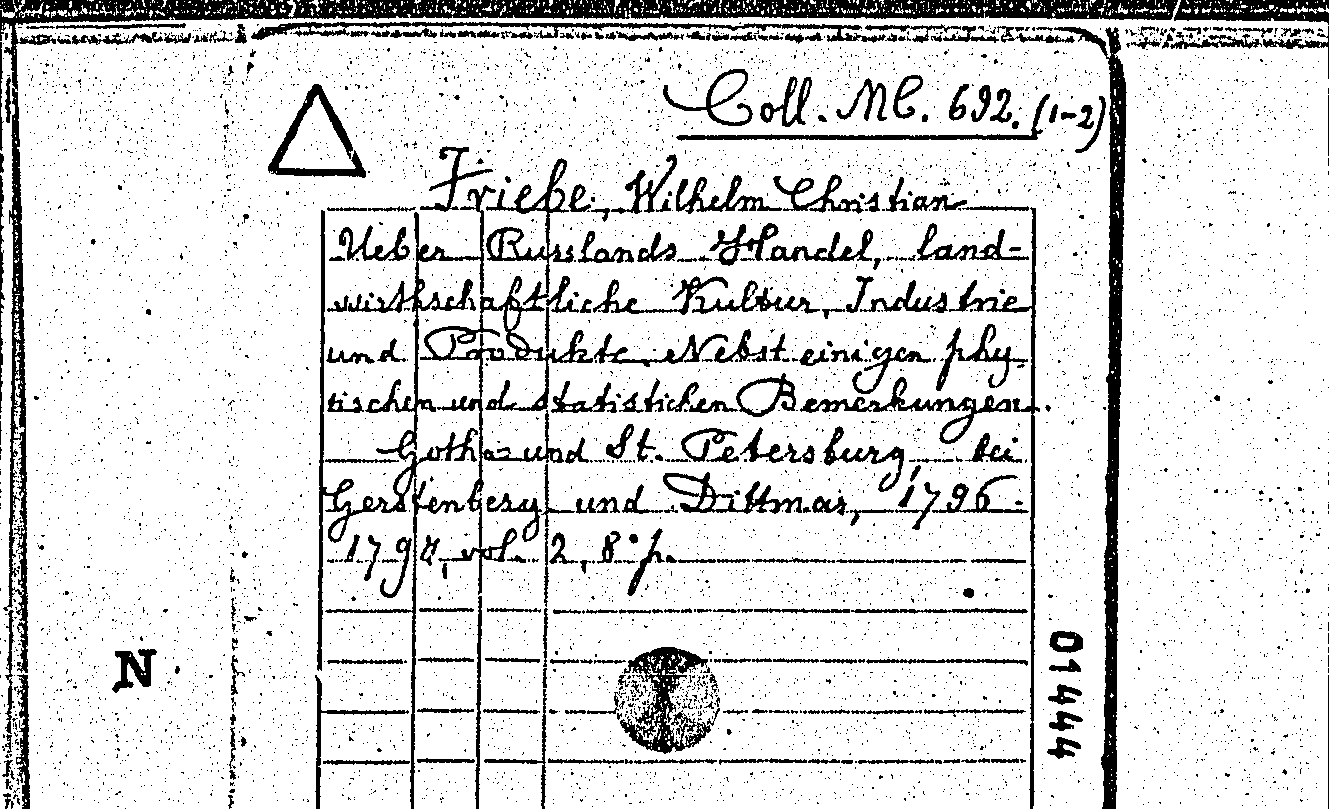 Coll. MC. 692. (1-2)
Friebe, Wilhelm Christian
Ueber Russlands Handel, land-
wirthschaftliche Kultur, Industrie
und Produkte. Nebst einigen phy-
sischen und statistichen Bemerkungen.
Gotha und St. Petersburg, bei
Gerstenberg und Dittmar, 1796-
1798, vol. 2, 8° p.
N
01444